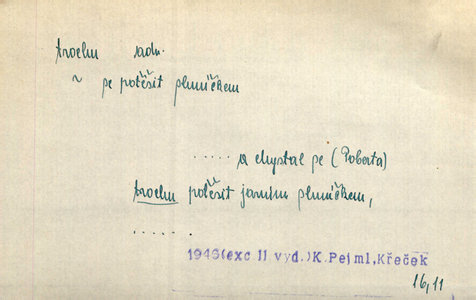 trochu adv.
~ se potěšit sluníčkem
...... a chystal se (Roberta)
trochu potěšit jarním sluníčkem,
.......
1946(exc 11 vyd.)K.Pejml,Křeček
16,11